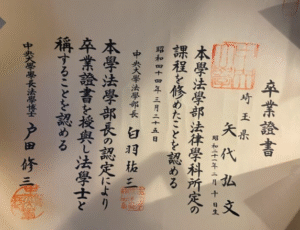 卒業證書
埼玉県
矢代弘文
昭和二十一年二月十日生
本學法學部法律學科所定の
課程を修めたことを認める
昭和四十四年三月二十五日
中央大學法學部長 臼羽祐三
本學法學部長の認定により
卒業證書を授與し法學士と
稱することを認める
中央大學學長法學博士 戸田修三